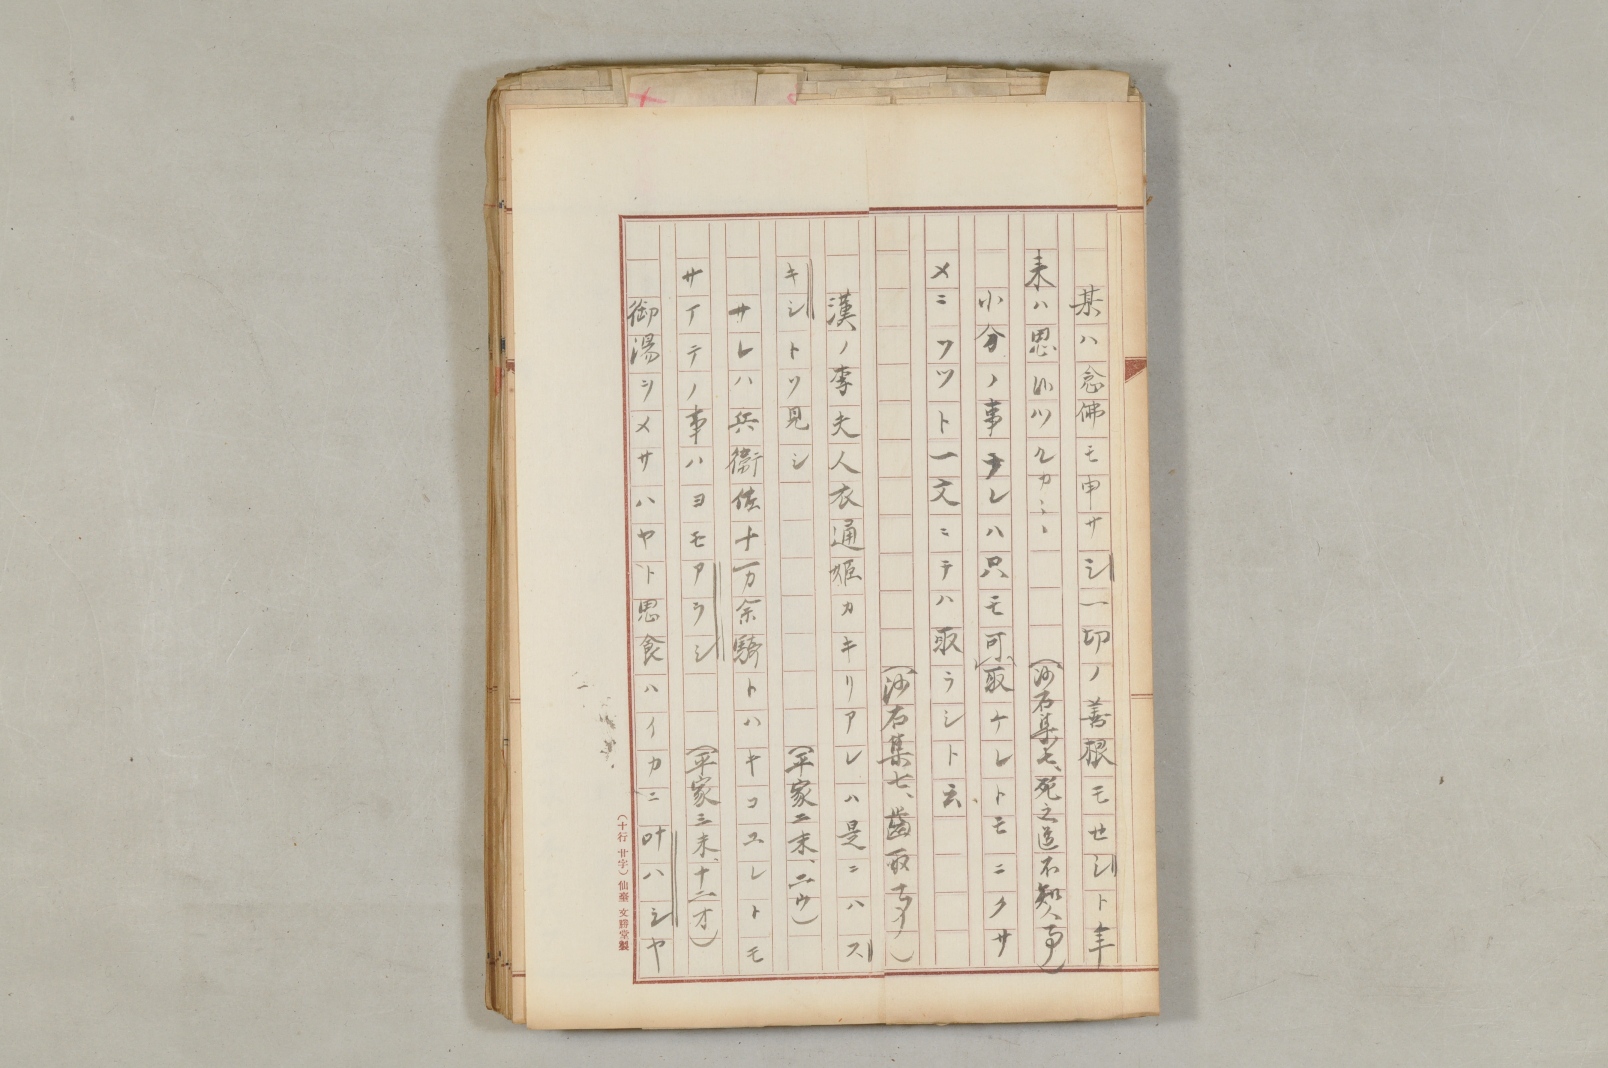 某ハ念佛モ申サシ一切ノ善根モセシト年
来ハ思ヒツルカ、、（沙石集七、死之道不知人事）
小分ノ事ナレハ只モ可取ケレトモニクサ
メニワツト一文ニテハ取ラシト云、
（沙石集七、歯取事）
漢ノ李夫人衣通姫カキリアレハ是ニハス
キシトソ見シ（平家二末、二ウ）
サレハ兵衞佐十万余騎トハキコユレトモ
サイテノ事ハヨモアラシ（平家三末、十二オ）
御湯ヲメサハヤト思食ハイカニ叶ハシヤ
（十行 廿字）仙臺 文勝堂製